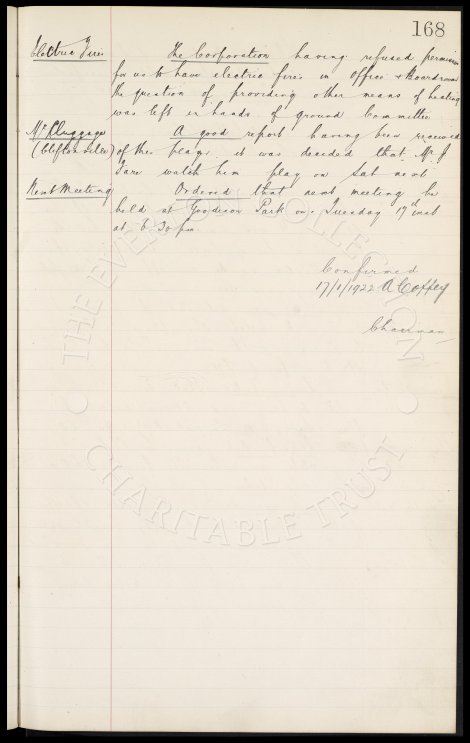 168
Electric Fires The Corporation having refused permission
for us to have electric fires in Office & Boardroom
the question of providing other means of heating
was left in hands of ground Committee.
McCluggage A good report having been received
(Cliftonville) of this player it was decided that Mr. J
Fare watch him play on Sat next
Next Meeting Ordered that next meeting be
held at Goodison Park on Tuesday 17th inst
at 6.30 pm.
Confirmed
17/1/1922 A Coffey
Chairman
THE EVERTON COLLECTION
CHARITABLE TRUST